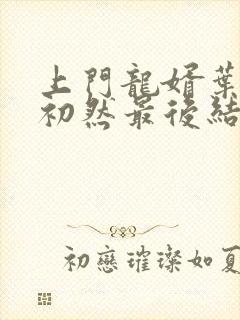 上門龍婿葉
初然最後結
初戀璀璨如夏